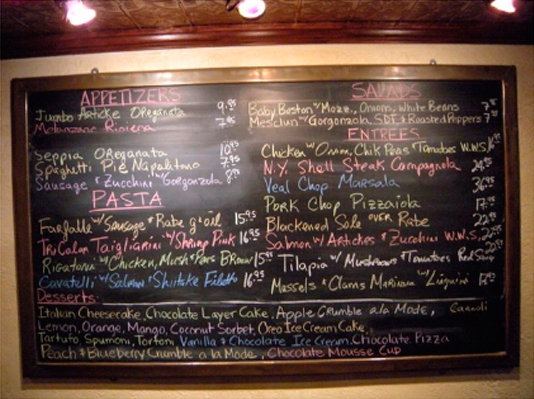 APPETIZERS
Jumbo Artichke OReganata 9.95
Melanzane Riviera 7.95
Seppia OReganata 10.95
Spaghetti Pie Napalitano 7.95
Sausage & Zucchini w/ Gorgonzola 8.95
PASTA
Farfalle w/ Sausage & Rabe g & oil 15.95
TriColor Taigliarini w/ Shrimp Pink 16.95
Rigatoni w/ Chicken, Mush & Peas Brown 15.95
Cavatelli w/ Salmon & Shiitake Filetto 16.95
SALADS
Baby Boston w/ Mozz., Onions, White Beans 7.95
Mesclun w/ Gorgonzola, SDT & Roasted Peppers 7.95
ENTREES
Chicken w/ Onion, Chik Peas & Tomatoes W.W.S
N.Y. Shell Steak Campagnola
Veal Chop Marsala
Pork Chop Pizzaiola
Blackened Sole over Rabe
Salmon w/ Artickes & Zucchini W.W.S.
Tilapia w/ Mushrooms & Tomatoes Red Soup
Mussels & Clams Marinara w/ Linguini
Desserts:
Italian Cheesecake, Chocolate Layer Cake, Apple Crumble a la Mode,
Lemon, Orange, Mango, Coconut Sorbet, Oreo Ice Cream Cake,
Tartufo, Spumoni, Tortoni Vanilla & Chocolate Ice Cream Chocolate Pizza
Peach & Blueberry Crumble a la Mode, Chocolate Mousse Cup